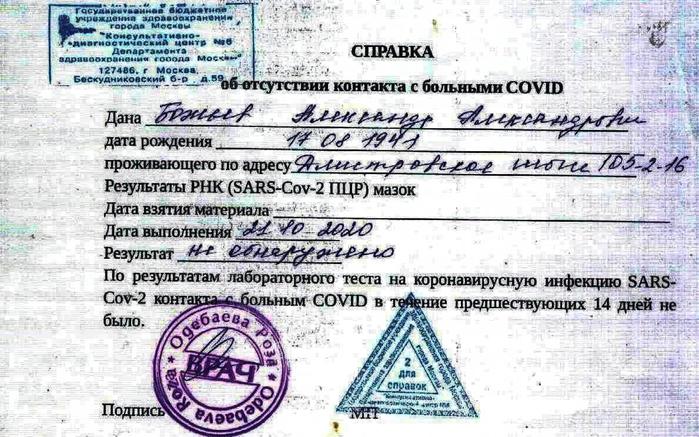 Государственное бюджетное
учреждение здравоохранения
города Москвы
"Консультативно-
диагностический центр №6
Департамента
здравоохранения города Москвы"
127486, г. Москва,
Бескудниковский б-р д.59
СПРАВКА
об отсутствии контакта с больными COVID
Дана Божьев Александр Александрович
дата рождения 17 08 1941
проживающего по адресу 105-2-16
Результаты РНК (SARS-Cov-2 ПЦР) мазок
Дата взятия материала
Дата выполнения 21 10 2020
Результат не обнаружено
По результатам лабораторного теста на коронавирусную инфекцию SARS-
Cov-2 контакта с больным COVID в течение предшествующих 14 дней не
было.
Одебаева Роза
ВРАЧ
Odebaeva Roza
2
для
справок
Подпись
МП